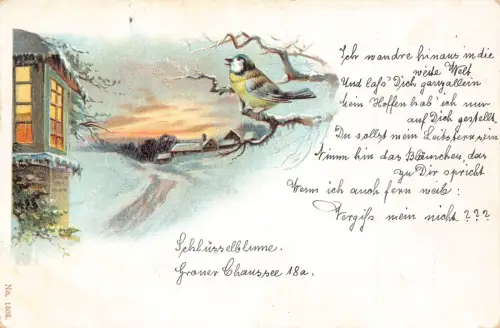 Ich wandre hinaus in die
weite Welt
Und lass' Dich ganz allein
Mein Hoffen hab' ich nur
auf Dich gestellt
Du sollst mein Leitstern sein
Nimm hin das Blümchen, das
zu Dir spricht
Wenn ich auch fern weil:
Vergiß mein nicht ???
Schlüsselblume.
Groner Chaussee 18a.
No. 1503.